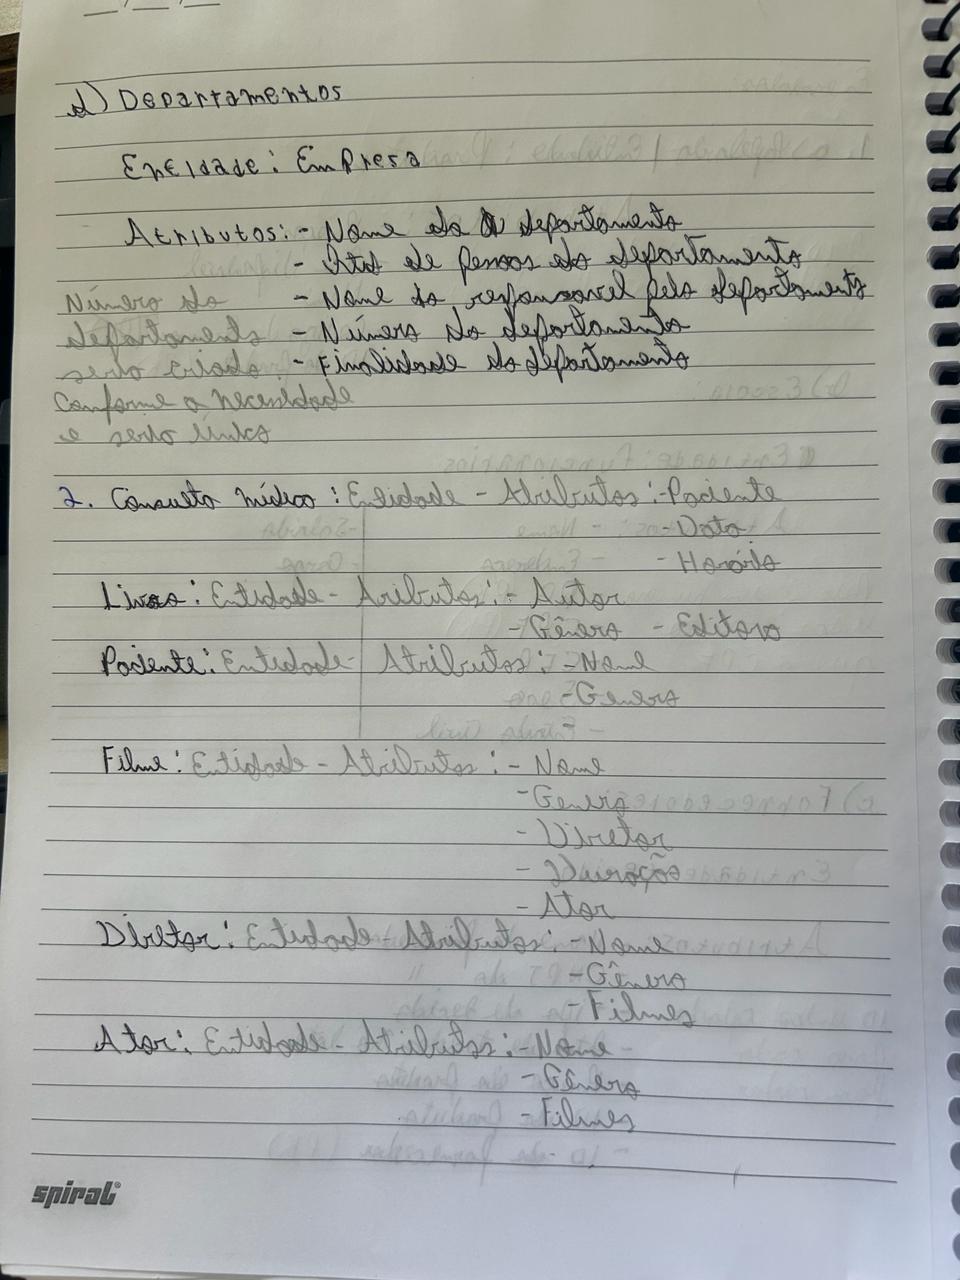 __/__/__
d) Departamentos
Entidade: Empresa
Atributos: - Nome do departamento
- Qtd de pessoas do departamento
- Nome do responsavel pelo departamento
- Número do departamento
- Finalidade do departamento
Número do
departamento
serão criados
Conforme a necessidade
e serão links
2. Consulta médica: Entidade - Atributos: - Paciente
- Data
- Horário
Livro: Entidade - Atributos: - Autor
- Gênero - Editora
Paciente: Entidade - Atributos: - Nome
- Genero
-
Filme: Entidade - Atributos: - Nome
- Genero
- Diretor
- Duração
- Ator
Diretor: Entidade - Atributos: - Nome
- Gênero
- Filmes
Ator: Entidade - Atributos: - Nome
- Gênero
- Filmes
spiral